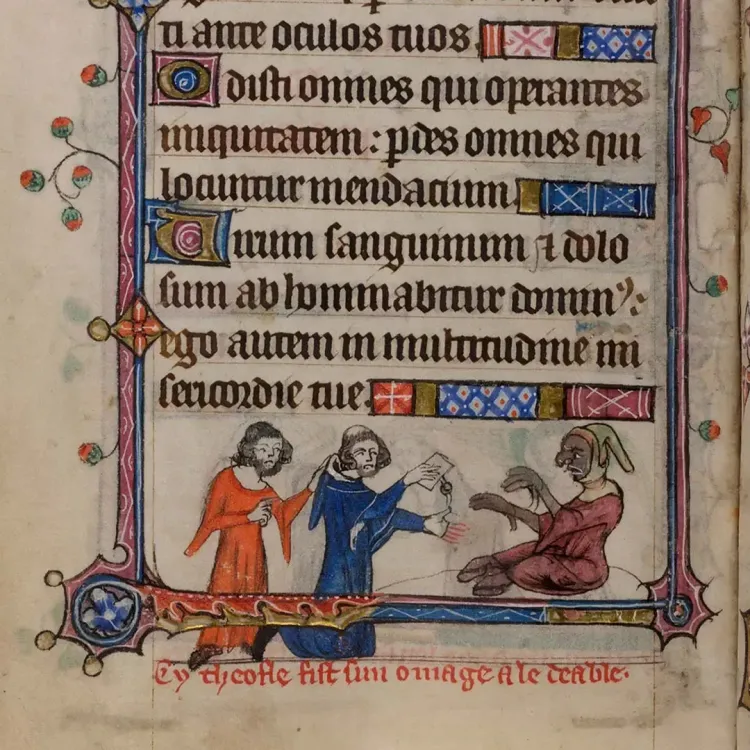 ti ante oculos tuos.
Odisti omnes qui operantes
iniquitatem: pdes omnes qui
locuntur mendacium.
Uirum sanguinum & dolo
sum abhominabitur domin9:
ego autem in multitudine mi
sericordie tue.
Cy theofle fist sun omage a le deable.